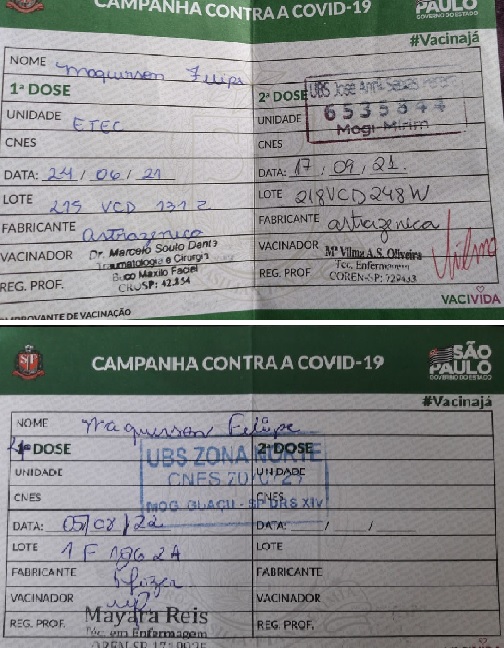 CAMPANHA CONTRA A COVID-19
PAULO
GOVERNO DO ESTADO
#Vacinajá
NOME Maquirson Felipe
1ª DOSE
UNIDADE ETEC
CNES
DATA: 24/06/21
LOTE 215 VCD 131 Z
FABRICANTE astrazenica
VACINADOR Dr. Marcelo Souto Dantas
Traumatologia e Cirurgia
Buco Maxilo Facial
REG. PROF. CROSP: 42.154
2ª DOSE UBS José
UNIDADE 6535844
Mogi Mirim
CNES
DATA: 17/09/21.
LOTE 218VCD248W
FABRICANTE astrazenica
VACINADOR Mª Vilma A.S. Oliveira
Tec. Enfermagem
REG. PROF. COREN-SP:
Vilma
VACIVIDA
COMPROVANTE DE VACINAÇÃO
CAMPANHA CONTRA A COVID-19
SÃO
PAULO
GOVERNO DO ESTADO
#Vacinajá
NOME Maquirson Felipe
DOSE
2ª DOSE
UBS ZONA NORTE
UNIDADE
UNIDADE
CNES
CNES
CNES
MOG GUAÇU - SP DRS XIV
DATA: 05/08/22
DATA: / /
LOTE 1F1062A
LOTE
FABRICANTE Pfizer
FABRICANTE
VACINADOR
VACINADOR
REG. PROF. Mayara Reis
Téc. em Enfermagem
REG. PROF.